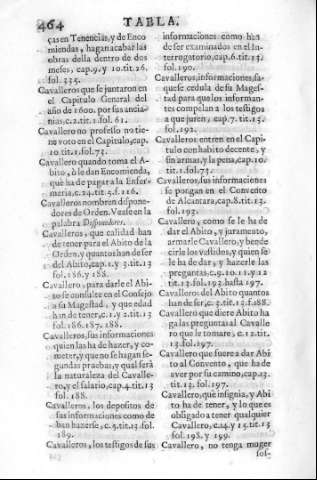 464 TABLA.
ças en Tenencias, y de Enco
miendas, hagan acabar las
obras della dentro de dos
meses, cap.9. y 10. tit.26.
fol.335.
Cavalleros que se juntaron en
el Capitulo General del
año de 1600. por sus ancia-
nias, c.2. tit.1. fol.61.
Cavallero no professo no tie-
ne voto en el Capitulo, cap.
10. tit.1. fol.73.
Cavallero quando toma el A-
bito, ò le dan Encomienda,
què ha de pagar a la Enfer-
meria, c.24. tit.3. f.116.
Cavalleros nombren dispone-
dores de Orden. Vease en la
palabra Disponedores.
Cavalleros, que calidad han
de tener para el Abito de la
Orden, y quantos han de ser
del Abito, cap.1. y 3. tit.13
fol.186. y 188.
Cavallero, para darle el Abi-
to se consulte en el Consejo
a su Magestad, y que edad
han de tener, c.1. y 2. tit.13
fol.186. 187. 188.
Cavalleros, sus informaciones
quien las ha de hazer, y co-
meter, y que no se hagan se-
gundas pruebas, y qual serà
la naturaleza del Cavalle-
ro, y el salario, cap.4. tit.13
fol.188.
Cavalleros, los depositos de
sus informaciones como de
ban hazerse, c.5. tit.13 fol.
189.
Cavalleros, los testigos de sus
informaciones como han
de ser examinados en el In-
terrogatorio, cap.6. tit.13.
fol.190.
Cavalleros, informaciones, sa-
quese cedula de su Mages-
tad para que los informan-
tes compelan a los testigos
a que juren, cap.7. tit.13.
fol.192.
Cavalleros entren en el Capi-
tulo con habito decente, y
sin armas, y la pena, cap.10.
tit.1. fol.73.
Cavalleros, sus informaciones
se pongan en el Convento
de Alcantara, cap.8. tit.13.
fol.193.
Cavallero, como se le ha de
dar el Abito, y juramento,
armarle Cavallero, y bende
cirle los vestidos, y quien se
le ha de dar, y hazerle las
preguntas, c.9. 10. 11. y 12
tit.13. fol.193. hasta 197.
Cavalleros del Abito quantos
han de ser, c.3. tit.13. f.188.
Cavallero que diere Abito ha
ga las preguntas al Cavalle
ro que le tomare, c.12. tit.
13. fol.197.
Cavallero que fuere a dar Abi
to al Convento, que ha de
aver por su camino, cap.13.
tit.13. fol.197.
Cavallero, què insignia, y Abi
to ha de tener, y lo que es
obligado a tener qualquier
Cavallero, c.14. y 15. tit.13
fol.198. y 199.
Cavallero, no tenga muger
sos-